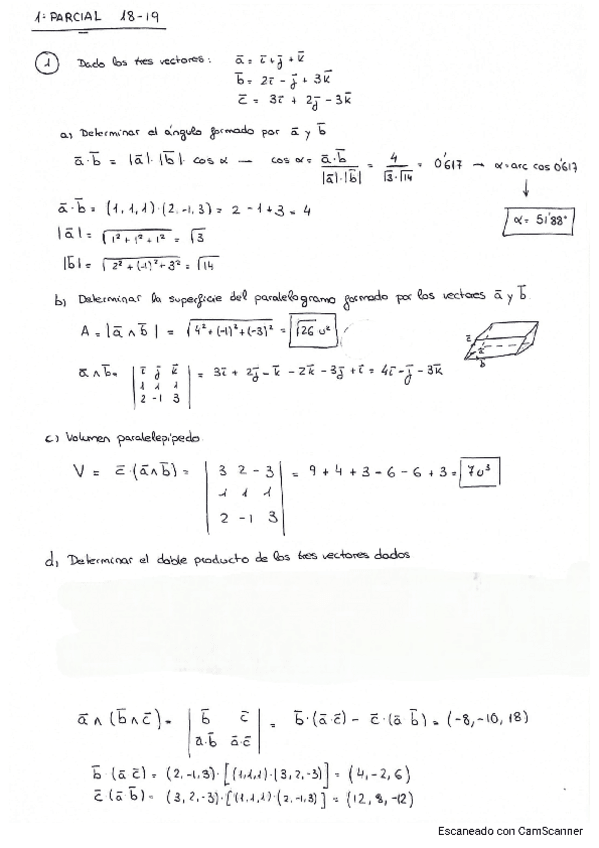 1º PARCIAL 18-19
① Dado los tres vectores: a̅ = i̅ + j̅ + k̅
b̅ = 2i̅ - j̅ + 3k̅
c̅ = 3i̅ + 2j̅ - 3k̅
a) Determinar el ángulo formado por a̅ y b̅
a̅·b̅ = |a̅|·|b̅|·cos α — cos α = a̅·b̅ / |a̅|·|b̅| = 4 / √3·√14 = 0'617 → α = arc cos 0'617
a̅·b̅ = (1, 1, 1)·(2, -1, 3) = 2 - 1 + 3 = 4
α = 51'88°
|a̅| = √1² + 1² + 1² = √3
|b̅| = √2² + (-1)² + 3² = √14
b) Determinar la superficie del paralelogramo formado por los vectores a̅ y b̅.
A = |a̅ ∧ b̅| = √4² + (-1)² + (-3)² = √26 u²
a̅ ∧ b̅ = | i̅ j̅ k̅ | = 3i̅ + 2j̅ - k̅ - 2k̅ - 3j̅ + i̅ = 4i̅ - j̅ - 3k̅
1 1 1
2 -1 3
c) Volumen paralelepípedo
V = c̅·(a̅ ∧ b̅) = | 3 2 -3 | = 9 + 4 + 3 - 6 - 6 + 3 = 7 u³
1 1 1
2 -1 3
d) Determinar el doble producto de los tres vectores dados
a̅ ∧ (b̅ ∧ c̅) = | b̅ c̅ | = b̅·(a̅·c̅) - c̅·(a̅ b̅) = (-8, -10, 18)
a̅·b̅ a̅·c̅
b̅·(a̅ c̅) = (2, -1, 3)·[(1,1,1)·(3, 2, -3)] = (4, -2, 6)
c̅·(a̅ b̅) = (3, 2, -3)·[(1, 1, 1)·(2, -1, 3)] = (12, 8, -12)
Escaneado con CamScanner